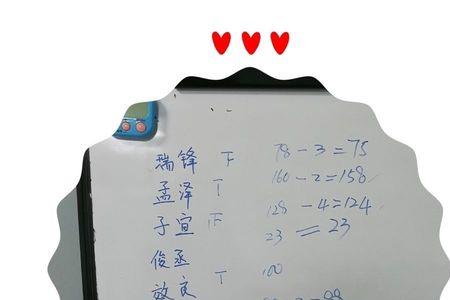 瑞锋 下 78-3=75
孟泽 T 160-2=158
子宜 正 128-4=124
23=23
俊丞
效良 T 100